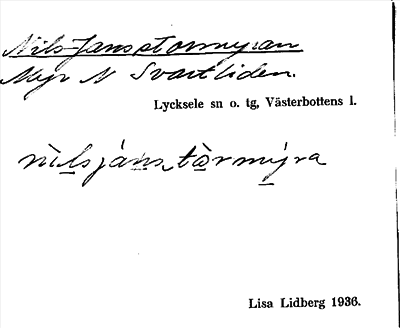 Nils-Jansstormyran
Myr N Svartliden.
Lycksele sn o. tg, Västerbottens l.
nìlsjánstòrmýra
Lisa Lidberg 1936.